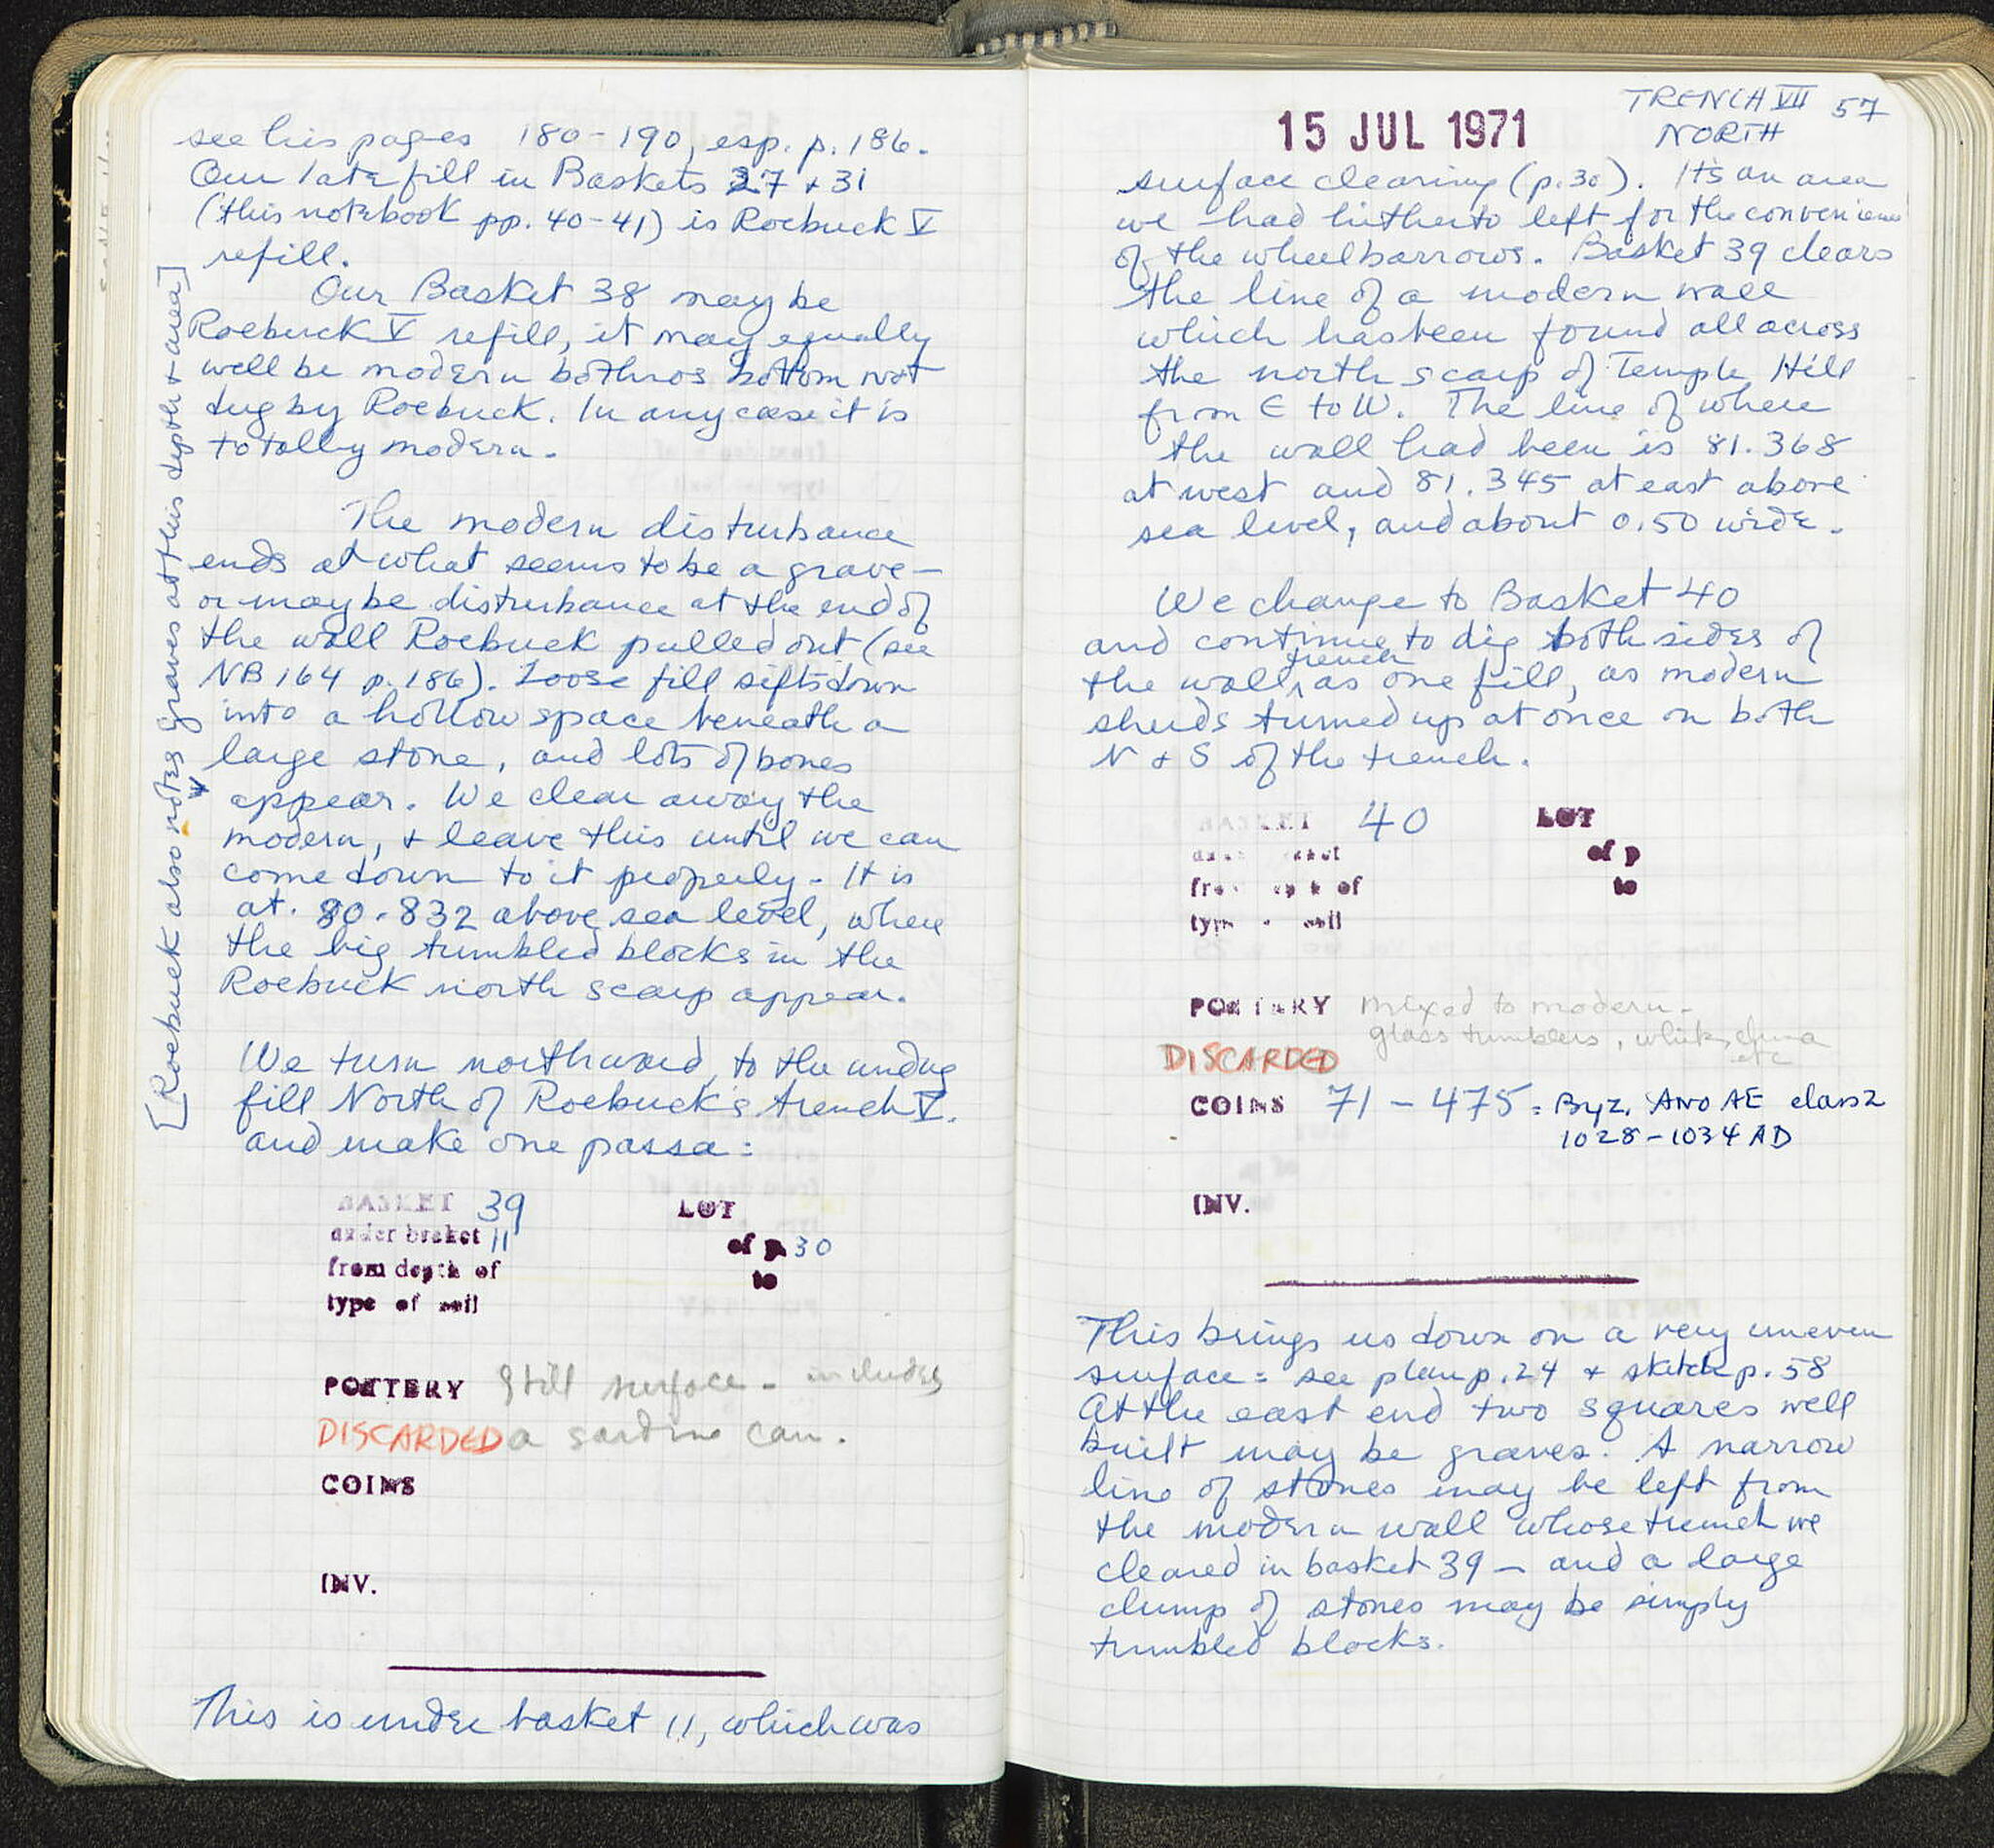 see his pages 180-190, esp. p. 186.
Our late fill in Baskets 27 + 31
(this notebook pp. 40-41) is Roebuck V
refill.
Our Basket 38 may be
Roebuck V refill, it may equally
well be modern bothros bottom not
dug by Roebuck. In any case it is
totally modern.
The modern disturbance
ends at what seems to be a grave-
or maybe disturbance at the end of
the wall Roebuck pulled out (see
NB 164 p. 186). Loose fill sifts down
into a hollow space beneath a
large stone, and lots of bones
appear. We clear away the
modern, + leave this until we can
come down to it properly. It is
at. 80.832 above sea level, where
the big tumbled blocks in the
Roebuck north scarp appear.
[Roebuck also notes graves at this depth + area]
We turn northward, to the undug
fill North of Roebuck's trench V.
and make one passa:
BASKET 39 LOT
under basket 11 of p. 30
from depth of to
type of soil
POTTERY Still surface - includes
DISCARDED a sardine can.
COINS
INV.
This is under basket 11, which was
15 JUL 1971
TRENCH VII 57
NORTH
surface clearing (p. 30). It's an area
we had hitherto left for the convenience
of the wheelbarrows. Basket 39 clears
the line of a modern wall
which has been found all across
the north scarp of Temple Hill
from E to W. The line of where
the wall had been is 81.368
at west and 81.345 at east above
sea level, and about 0.50 wide.
We change to Basket 40
and continue to dig both sides of
the wall trench as one fill, as modern
sherds turned up at once on both
N + S of the trench.
BASKET 40 LOT
under basket of p
from depth of to
type of soil
POTTERY mixed to modern -
glass tumblers, white china
etc
DISCARDED
COINS 71-475 = Byz. ANO AE class 2
1028-1034 AD
INV.
This brings us down on a very uneven
surface = see plan p. 24 + sketch p. 58
At the east end two squares well
built may be graves. A narrow
line of stones may be left from
the modern wall whose trench we
cleared in basket 39 - and a large
clump of stones may be simply
tumbled blocks.